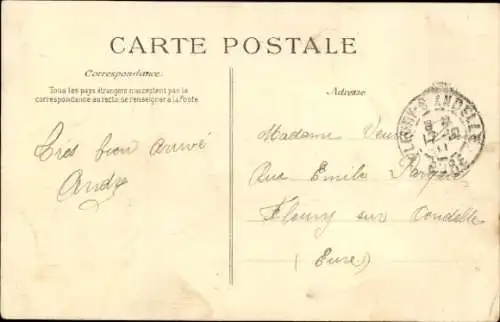 CARTE POSTALE
Correspondance.
Tous les pays étrangers n'acceptent pas la
correspondance au recto se renseigner à la Poste
Adresse
Très bien arrivé
André
Madame Veuve
Rue Emile
Fleury sur Andelle
(Eure)
FLEURY-S-ANDELLE
EURE